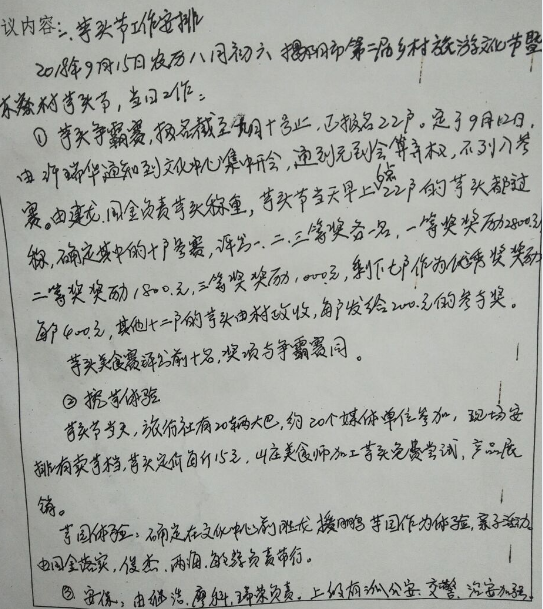 议内容:二、芋头节工作安排
2018年9月15日农历八月初六 揭阳市第二届乡村旅游文化节暨
村芋头节,当日工作:
① 芋头争霸赛,报名截至九月十号止,已报名22户。定于9月12日,
由许瑞华通知到文化中心集中开会,通到无到会算弃权,不列入参
赛。由国金负责芋头称重,芋头节当天早上6点22户的芋头都过
称,确定其中的十户参赛,评出一.二.三等奖各一名,一等奖奖励2800元,
二等奖奖励1800.元,三等奖奖励1000元,剩下七户作为优秀奖奖励
每户400元,其他十二户的芋头由村政收,每户发给200.元的参与奖。
芋头美食赛评出前十名,奖项与争霸赛同。
② 挖芋体验
芋头节当天,旅行社有20辆大巴,约20个媒体单位参加,现场安
排有卖芋档,芋头定价每斤15元,山庄美食师加工芋头免费尝试,产品展
销。
芋园体验:确定在文化中心前胜龙 援鹏芋园作为体验,亲子活动
由国金世家,俊杰,两负责带行。
③ 安保:由继浩,瑞荣负责。上级有派公安 交警 治安加强。